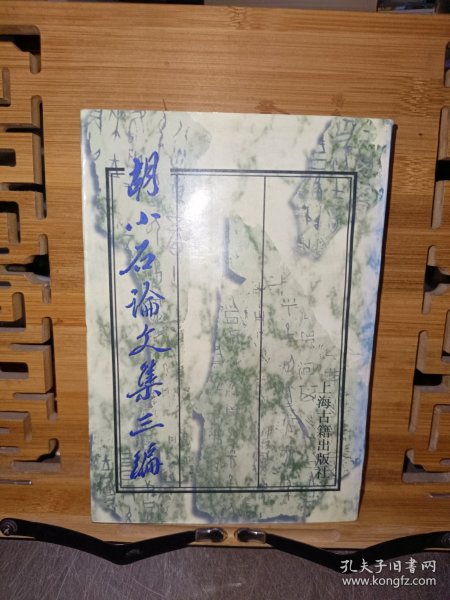 胡小石論文集三編
上海古籍出版社
孔夫子旧书网
www.kongfz.com